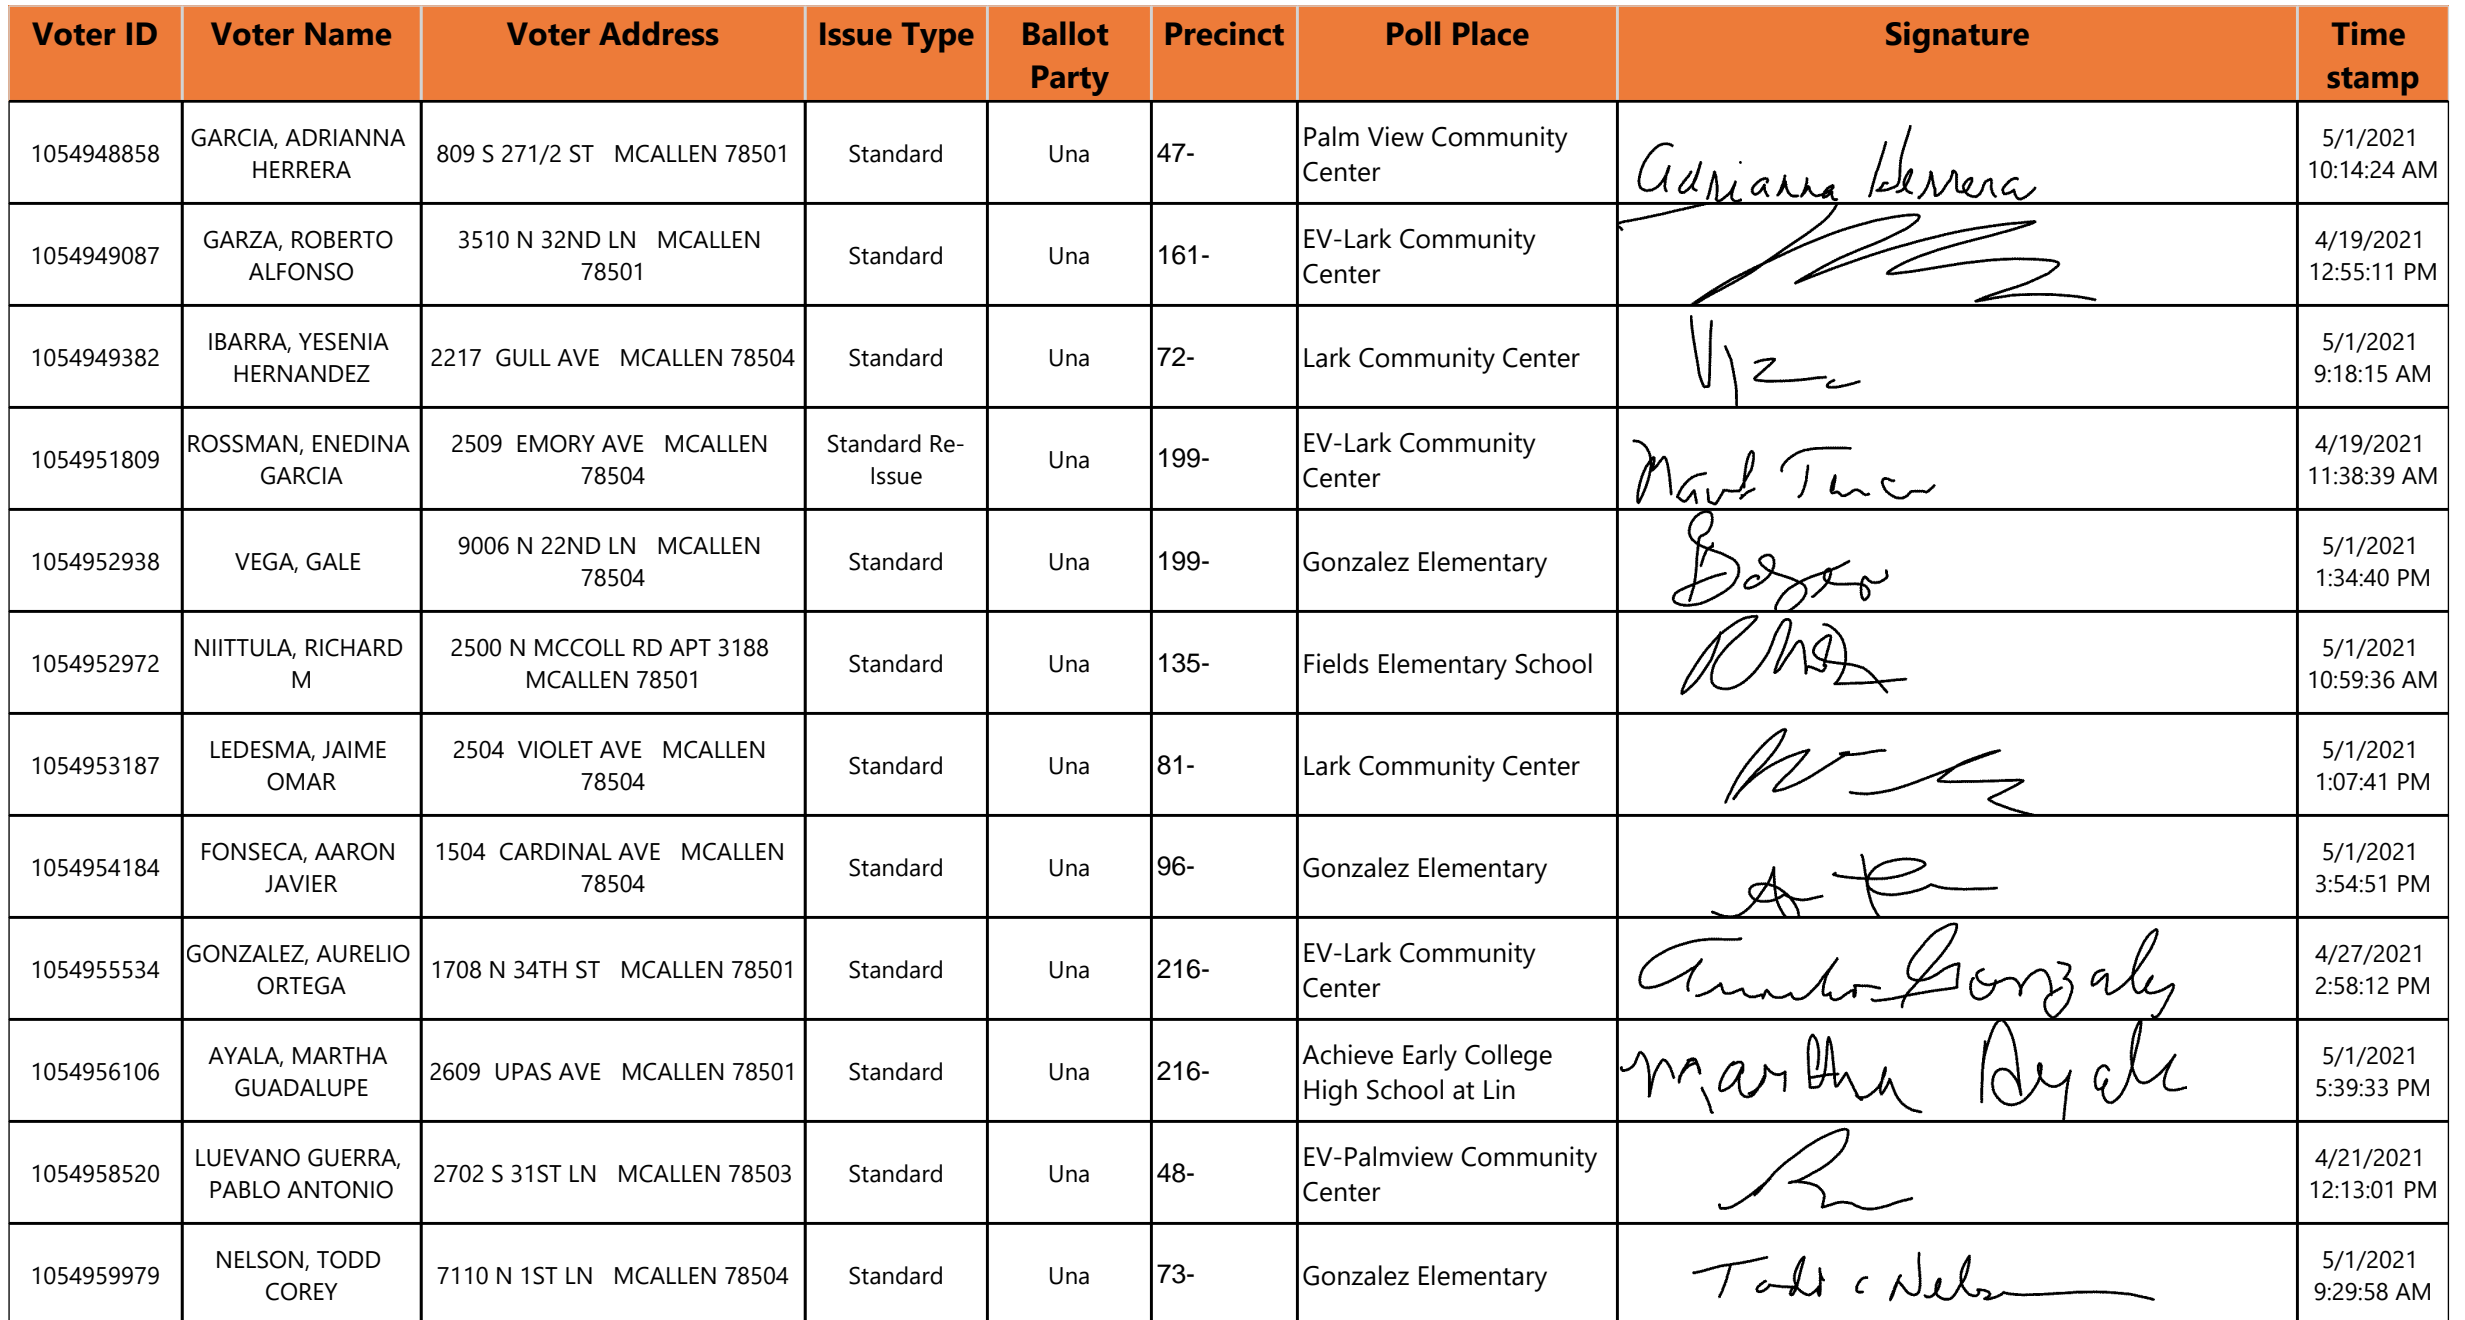 Voter ID Voter Name Voter Address Issue Type Ballot Party Precinct Poll Place Signature Time stamp
1054948858 GARCIA, ADRIANNA HERRERA 809 S 271/2 ST MCALLEN 78501 Standard Una 47- Palm View Community Center Adrianna Herrera 5/1/2021 10:14:24 AM
1054949087 GARZA, ROBERTO ALFONSO 3510 N 32ND LN MCALLEN 78501 Standard Una 161- EV-Lark Community Center 4/19/2021 12:55:11 PM
1054949382 IBARRA, YESENIA HERNANDEZ 2217 GULL AVE MCALLEN 78504 Standard Una 72- Lark Community Center 5/1/2021 9:18:15 AM
1054951809 ROSSMAN, ENEDINA GARCIA 2509 EMORY AVE MCALLEN 78504 Standard Re-Issue Una 199- EV-Lark Community Center 4/19/2021 11:38:39 AM
1054952938 VEGA, GALE 9006 N 22ND LN MCALLEN 78504 Standard Una 199- Gonzalez Elementary 5/1/2021 1:34:40 PM
1054952972 NIITTULA, RICHARD M 2500 N MCCOLL RD APT 3188 MCALLEN 78501 Standard Una 135- Fields Elementary School 5/1/2021 10:59:36 AM
1054953187 LEDESMA, JAIME OMAR 2504 VIOLET AVE MCALLEN 78504 Standard Una 81- Lark Community Center 5/1/2021 1:07:41 PM
1054954184 FONSECA, AARON JAVIER 1504 CARDINAL AVE MCALLEN 78504 Standard Una 96- Gonzalez Elementary 5/1/2021 3:54:51 PM
1054955534 GONZALEZ, AURELIO ORTEGA 1708 N 34TH ST MCALLEN 78501 Standard Una 216- EV-Lark Community Center Aurelio Gonzalez 4/27/2021 2:58:12 PM
1054956106 AYALA, MARTHA GUADALUPE 2609 UPAS AVE MCALLEN 78501 Standard Una 216- Achieve Early College High School at Lin Martha Ayala 5/1/2021 5:39:33 PM
1054958520 LUEVANO GUERRA, PABLO ANTONIO 2702 S 31ST LN MCALLEN 78503 Standard Una 48- EV-Palmview Community Center 4/21/2021 12:13:01 PM
1054959979 NELSON, TODD COREY 7110 N 1ST LN MCALLEN 78504 Standard Una 73- Gonzalez Elementary Todd C Nelson 5/1/2021 9:29:58 AM